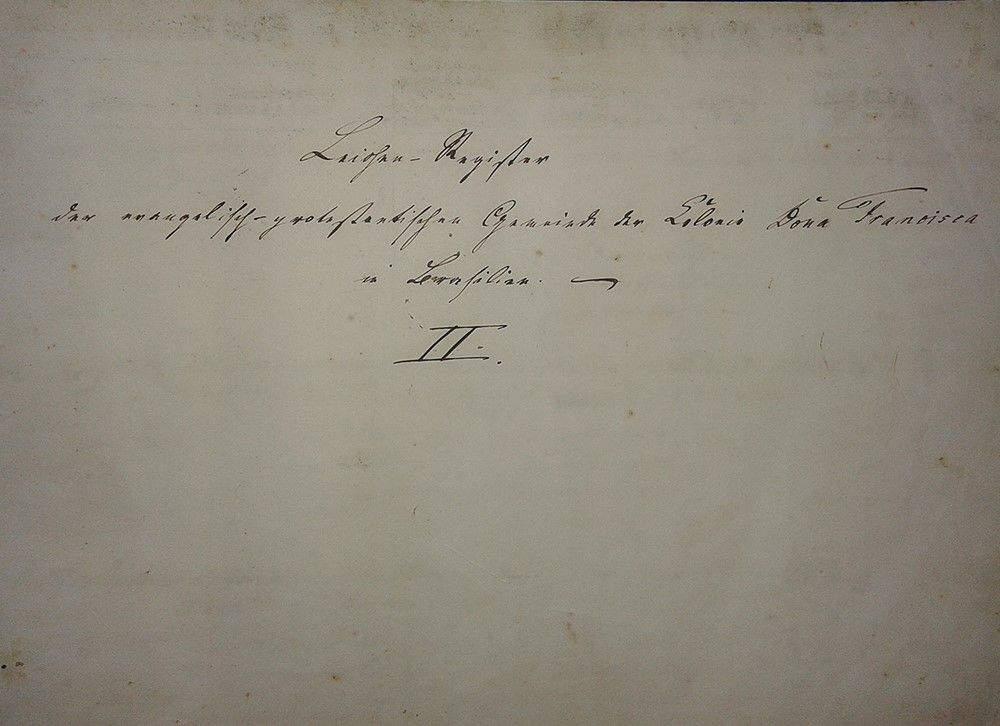 Leichen-Register
der evangelisch-protestantischen Gemeinde der Colonie Dona Francisca
in Brasilien. —
II.